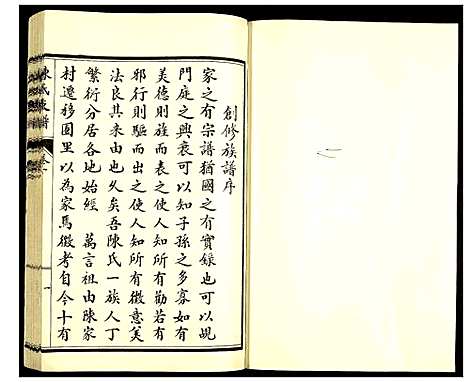 創修族譜序
家之有宗譜猶國之有實錄也可以覘
門庭之興衰可以知子孫之多寡如有
美德則旌而表之使人知所有勸若有
邪行則驅而出之使人知所有徵意美
法良其来由也久矣吾陳氏一族人丁
繁衍分居各地始經 萬言祖由陳家
村遷移圂里以為家焉徵考自今十有
陳氏族譜
卷一
一